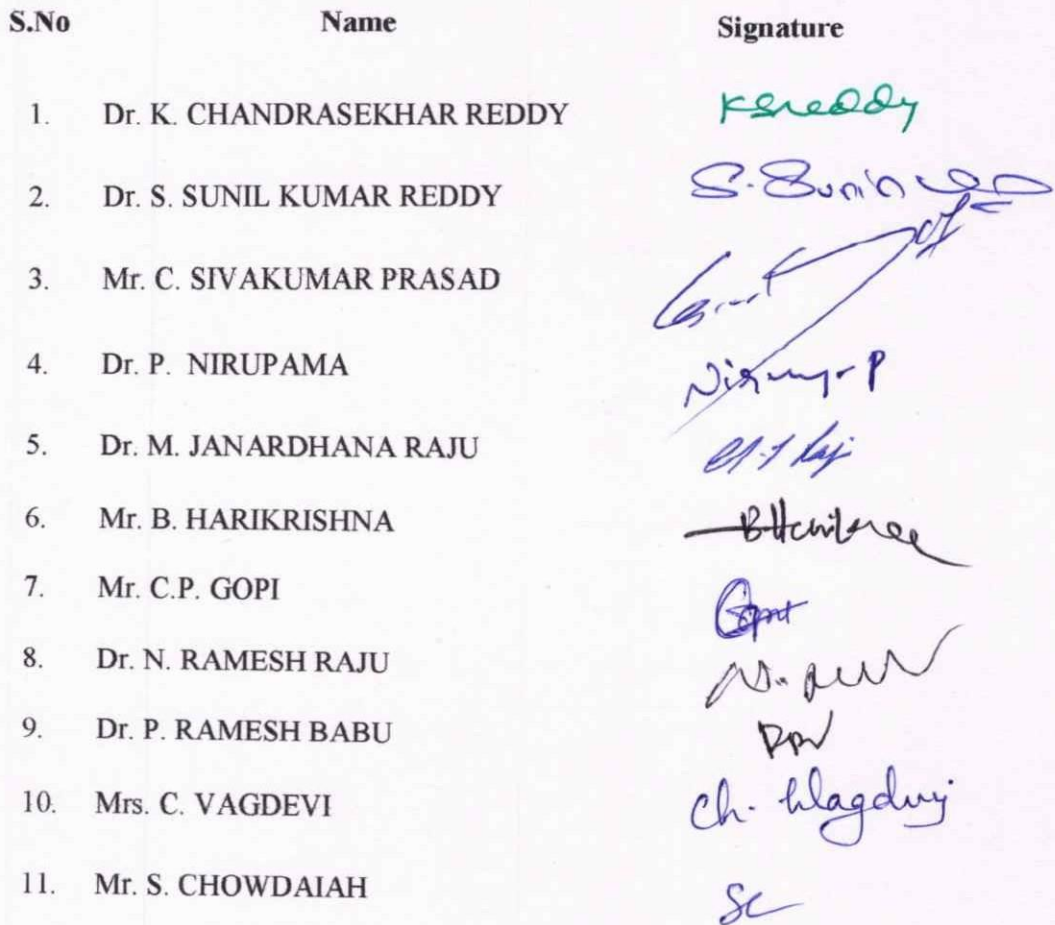 S.No Name Signature
1. Dr. K. CHANDRASEKHAR REDDY KSReddy
2. Dr. S. SUNIL KUMAR REDDY S. Sunil
3. Mr. C. SIVAKUMAR PRASAD
4. Dr. P. NIRUPAMA P
5. Dr. M. JANARDHANA RAJU
6. Mr. B. HARIKRISHNA
7. Mr. C.P. GOPI
8. Dr. N. RAMESH RAJU
9. Dr. P. RAMESH BABU
10. Mrs. C. VAGDEVI Ch.
11. Mr. S. CHOWDAIAH SC